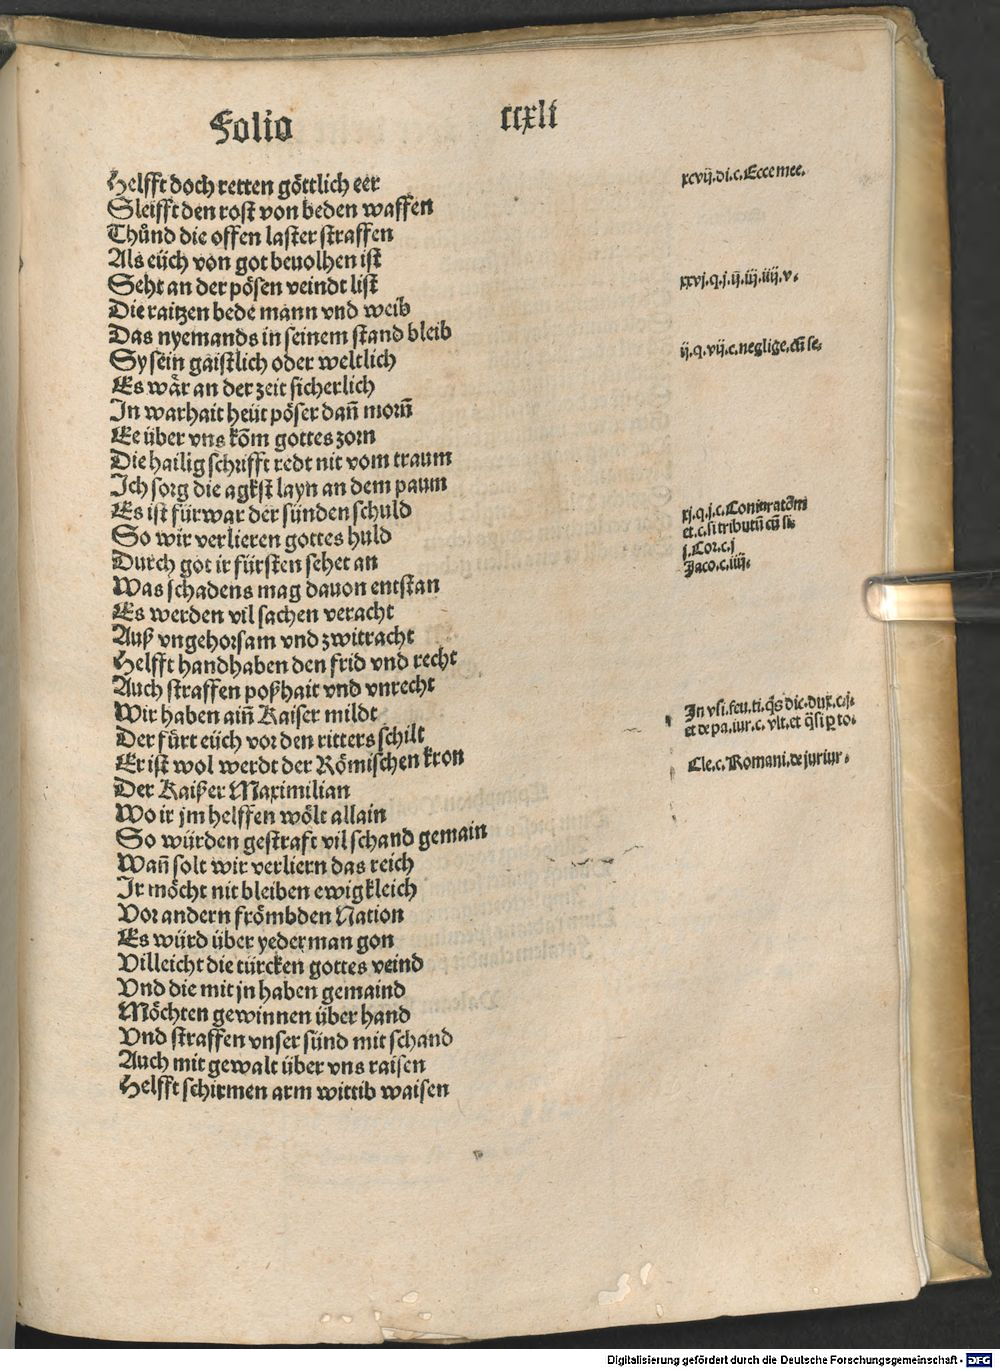 Folio ccxli
Helfft doch retten göttlich eer
Sleifft den rost von beden waffen
Thůnd die offen laster straffen
Als eüch von got beuolhen ist
Seht an der pösen veindt list
Die raitzen bede mann vnd weib
Das nyemands in seinem stand bleib
Sy sein gaistlich oder weltlich
Es wär an der zeit sicherlich
In warhait heüt pöser dañ morñ
Ee über vns kōm gottes zorn
Die hailig schrifft redt nit vom traum
Ich sorg die agkst layn an dem paum
Es ist fürwar der sünden schuld
So wir verlieren gottes huld
Durch got ir fürsten sehet an
Was schadens mag dauon entstan
Es werden vil sachen veracht
Auß vngehorsam vnd zwitracht
Helfft handhaben den frid vnd recht
Auch straffen poßhait vnd vnrecht
Wir haben aiñ Kaiser mildt
Der fürt eüch vor den ritters schilt
Er ist wol werdt der Römischen kron
Der Kaißer Maximilian
Wo ir jm helffen wölt allain
So würden gestraft vil schand gemain
Wañ solt wir verliern das reich
Ir möcht nit bleiben ewigkleich
Vor andern frömbden Nation
Es würd über yederman gon
Villeicht die türcken gottes veind
Vnd die mit jn haben gemaind
Möchten gewinnen über hand
Vnd straffen vnser sünd mit schand
Auch mit gewalt über vns raisen
Helfft schirmen arm wittib waisen
xcvij.di.c.Ecce mee.
xxvj.q.j.ij.iij.iiij.v.
ij.q.vij.c.neglige.cū se.
xj.q.j.c.Coniuratōm
et.c.si tributū cū si.
j.Cor.c.j
Jaco.c.iiij.
In vsi.feu.ti.q̄s dic.dux.c.j.
et de pa.iur.c.vlt.et q̄si ꝑ to.
Cle.c.Romani.de juriur.
Digitalisierung gefördert durch die Deutsche Forschungsgemeinschaft - DFG